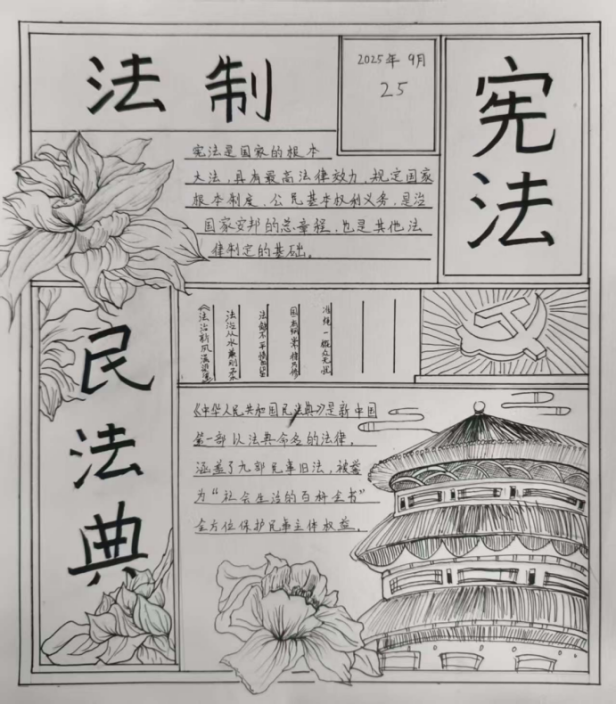 法制
2025年 9月
25
宪法
宪法是国家的根本
大法，具有最高法律效力，规定国家
根本制度、公民基本权利义务，是治
国家安邦的总章程，也是其他法
律制定的基础。
民法典
《中华人民共和国民法典》是新中国
第一部以法典命名的法律。
涵盖了九部民事旧法，被誉
为“社会生活的百科全书”
全方位保护民事主体权益。